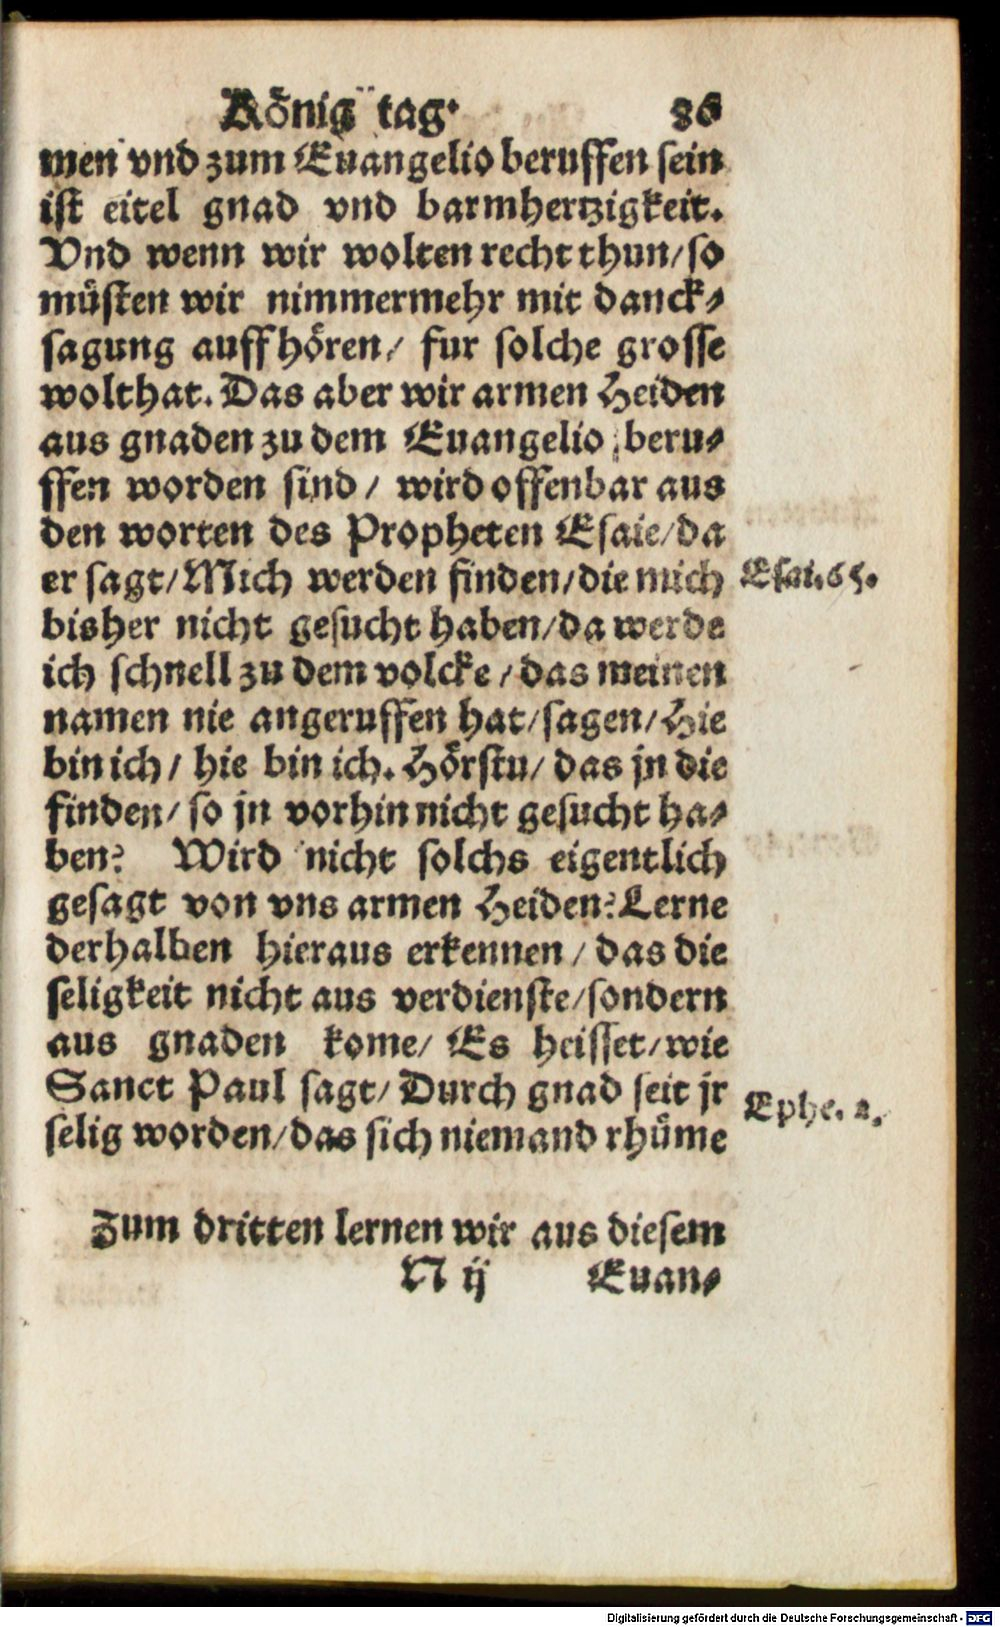 König tag. 86
men vnd zum Euangelio beruffen sein
ist eitel gnad vnd barmhertzigkeit.
Vnd wenn wir wolten recht thun/so
müsten wir nimmermehr mit danck⸗
sagung auffhören/ fur solche grosse
wolthat. Das aber wir armen Heiden
aus gnaden zu dem Euangelio beru⸗
ffen worden sind/ wird offenbar aus
den worten des Propheten Esaie/da
er sagt/Mich werden finden/die mich
Esai.65.
bisher nicht gesucht haben/da werde
ich schnell zu dem volcke/das meinen
namen nie angeruffen hat/sagen/Hie
bin ich/ hie bin ich. Hörstu/ das jn die
finden/ so jn vorhin nicht gesucht ha⸗
ben? Wird nicht solchs eigentlich
gesagt von vns armen Heiden? Lerne
derhalben hieraus erkennen/ das die
seligkeit nicht aus verdienste/sondern
aus gnaden kome/ Es heisset/wie
Sanct Paul sagt/ Durch gnad seit jr
Ephe. 2.
selig worden/das sich niemand rhüme
Zum dritten lernen wir aus diesem
N ij Euan⸗
Digitalisierung gefördert durch die Deutsche Forschungsgemeinschaft - DFG